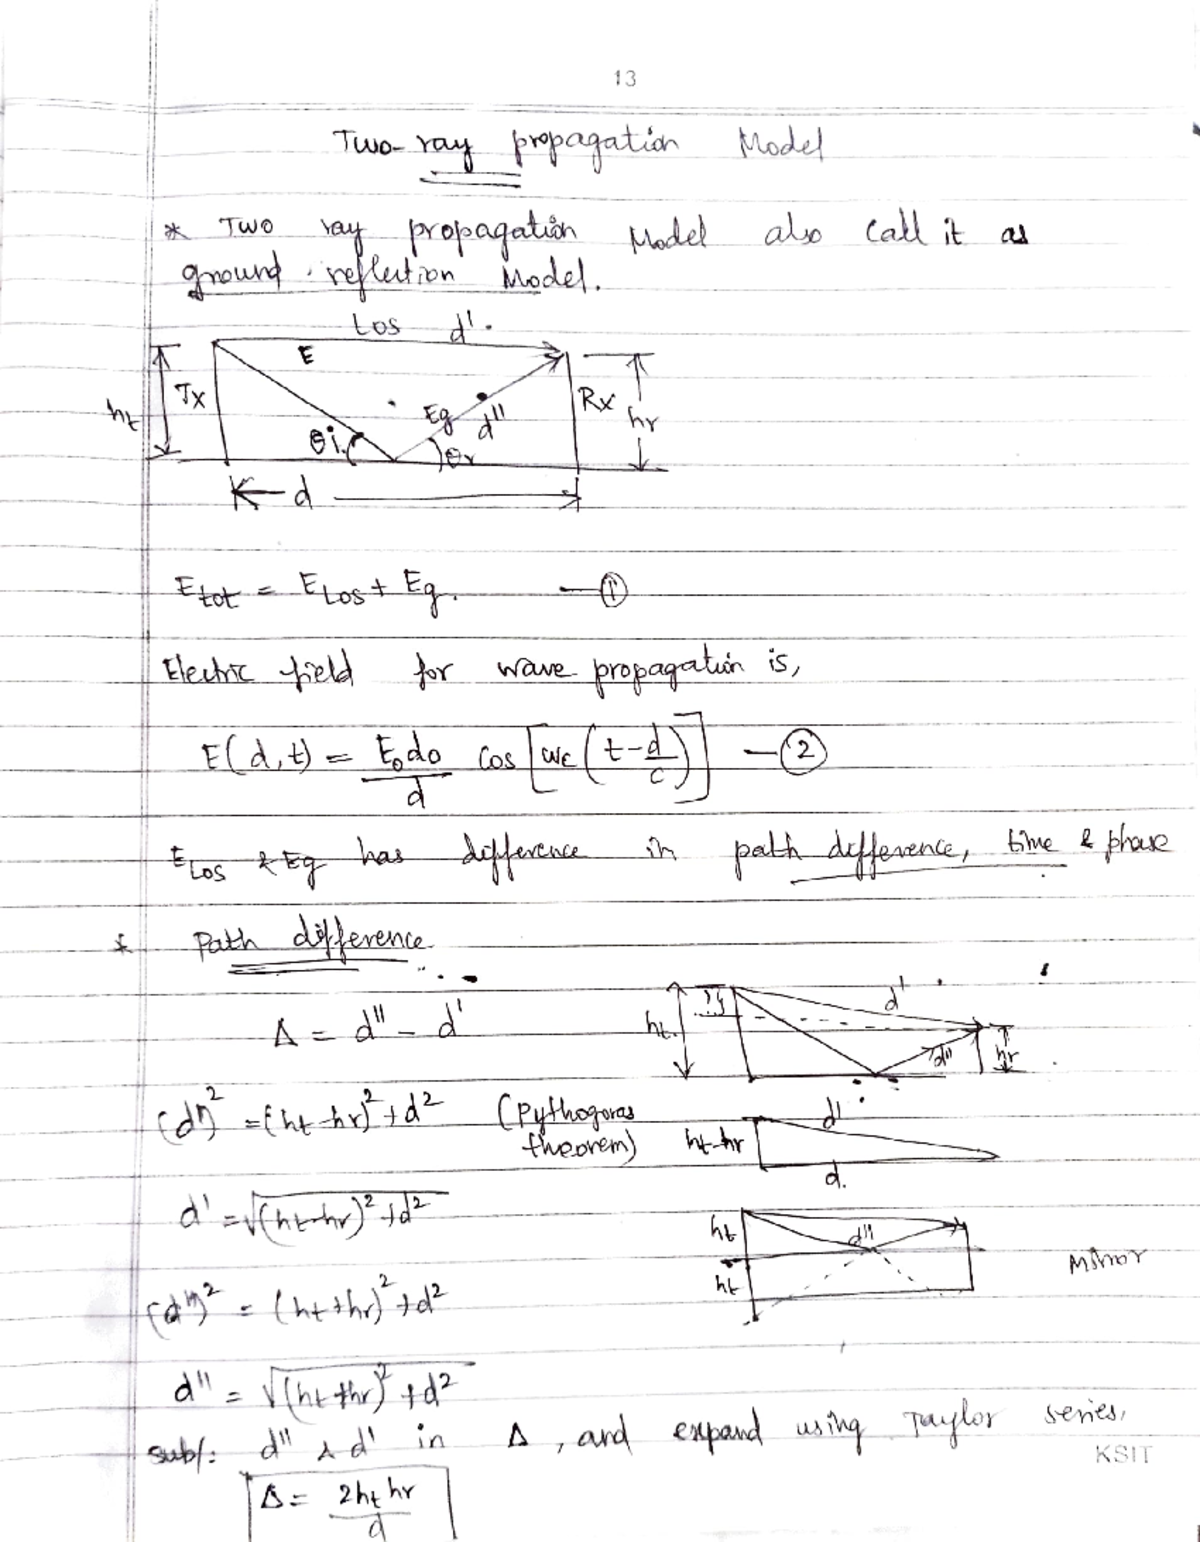 13
Two-ray propagation Model
* Two ray propagation Model also call it as
ground reflection Model.
Los d'.
E
ht Tx Eg d'' Rx hr
θi θr
d
Etot = ELos + Eg. — ①
Electric field for wave propagation is,
E(d,t) = E₀d₀/d cos [wc (t - d/c)] — ②
ELos & Eg has difference in path difference, time & phase
* Path difference
Δ = d'' - d'
ht d' d'' hr
(d')² = (ht-hr)² + d² (Pythogoras theorem)
ht-hr d' d.
d' = √(ht-hr)² + d²
ht d''
ht
Mirror
(d'')² = (ht+hr)² + d²
d'' = √(ht+hr)² + d²
sub/: d'' & d' in Δ, and expand using Taylor series,
KSIT
Δ = 2ht hr/d